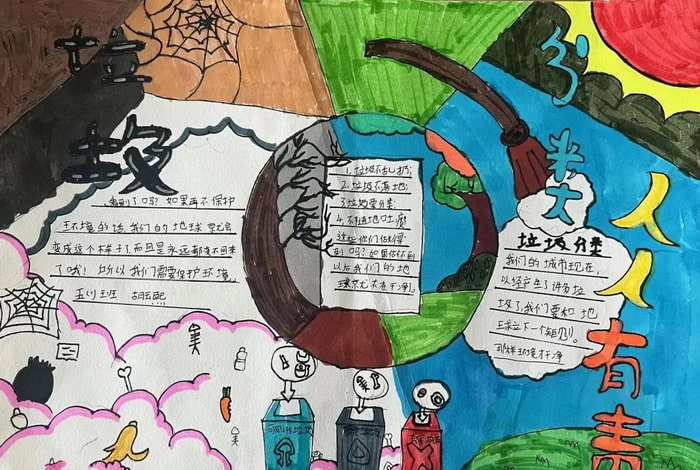 垃圾
分类
人人有责
看到了吗？如果再不保护
环境的话，我们的地球就会
变成这个样子了，而且是永远都变不回来
了哦！所以我们需要保护环境。
班 胡
1.垃圾不乱扔;
2.垃圾不落地;
3.垃圾要分类;
4.不随地吐痰
这些你们做得
到吗？如果做不到
以后我们的地
球就不在干净。
垃圾分类
我们的城市现在，
以经产生了许多垃
圾了，我们要和地
球立下一个规则。
那样环境干净